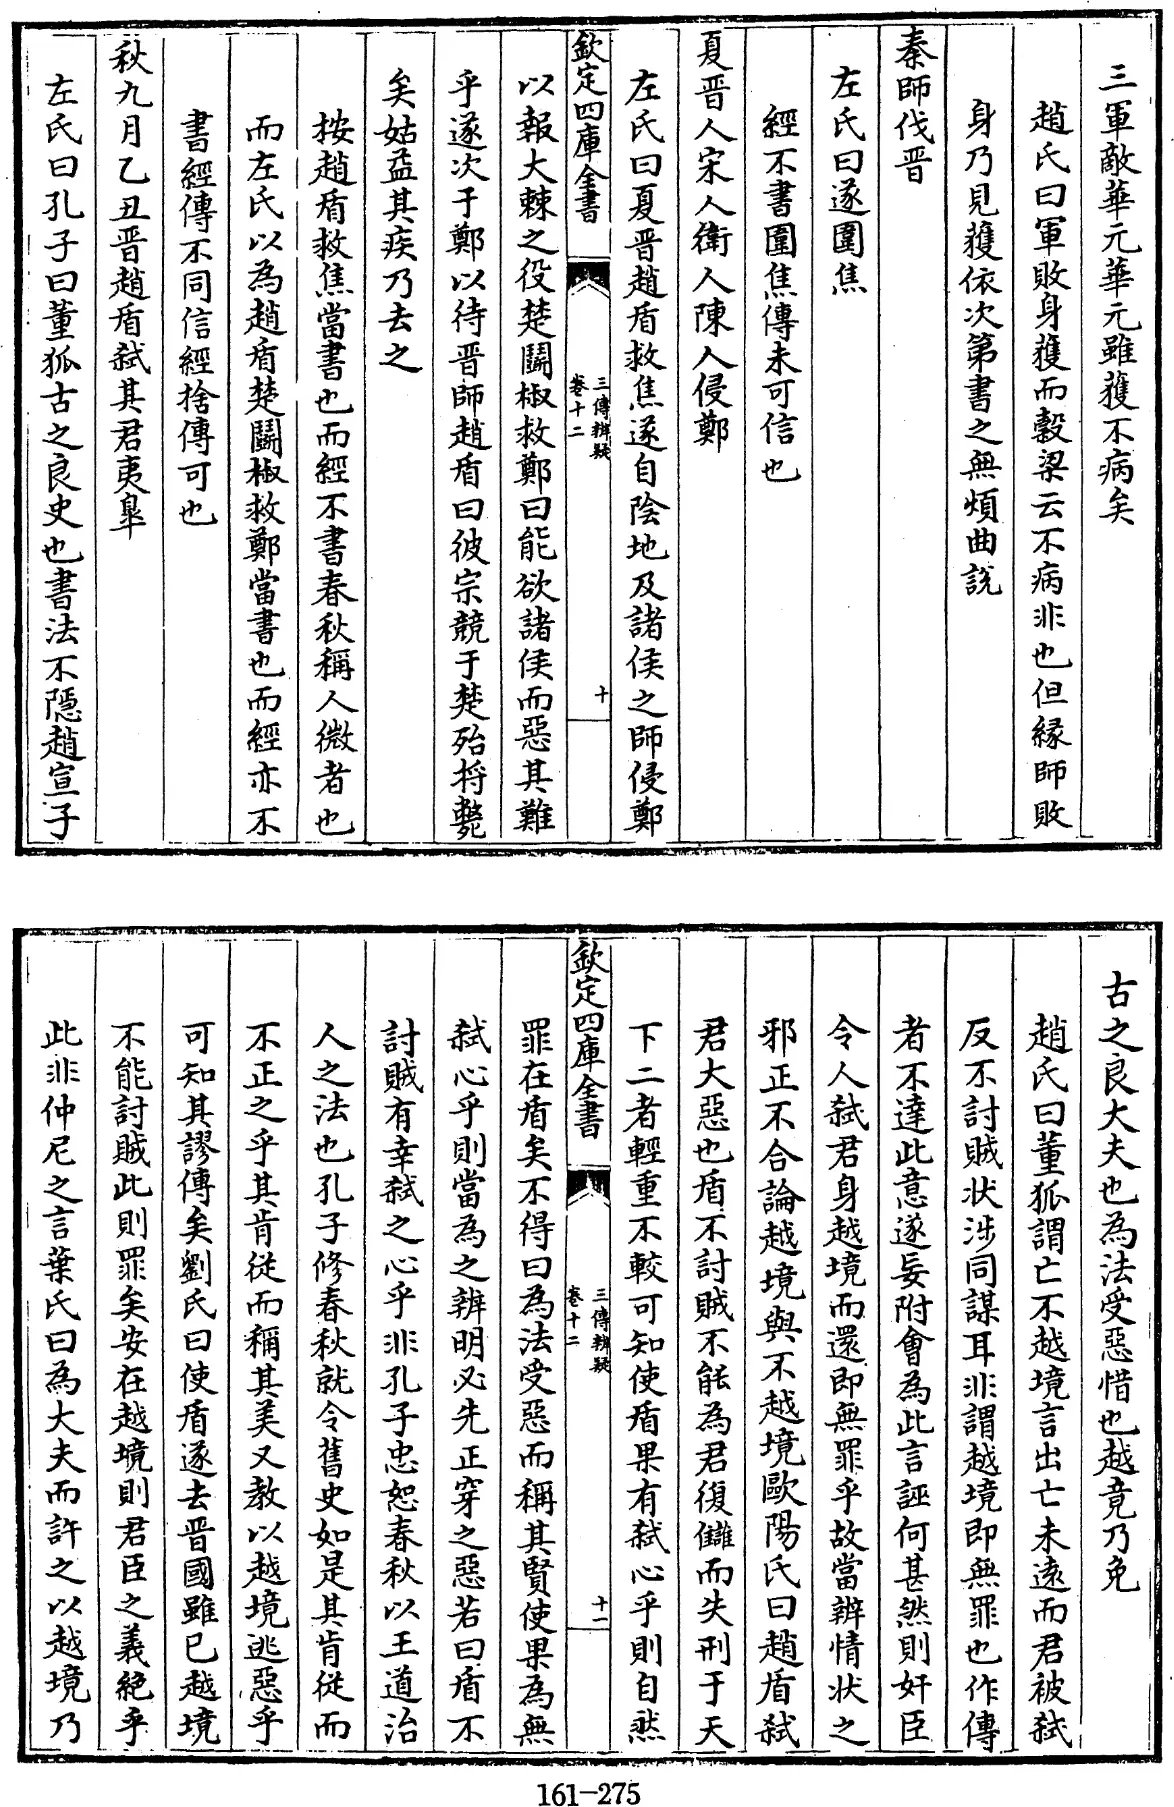 三軍敵華元華元雖獲不病矣
趙氏曰軍敗身獲而穀梁云不病非也但縁師敗
身乃見獲依次第書之無煩曲說
秦師伐晋
左氏曰遂圍焦
經不書圍焦傳未可信也
夏晋人宋人衛人陳人侵鄭
左氏曰夏晋趙盾救焦遂自陰地及諸侯之師侵鄭
欽定四庫全書
三傳辨疑
卷十二
十
以報大棘之役楚鬭椒救鄭曰能欲諸侯而惡其難
乎遂次于鄭以待晋師趙盾曰彼宗競于楚殆将斃
矣姑益其疾乃去之
按趙盾救焦當書也而經不書春秋稱人微者也
而左氏以為趙盾楚鬭椒救鄭當書也而經亦不
書經傳不同信經捨傳可也
秋九月乙丑晋趙盾弑其君夷臯
左氏曰孔子曰董狐古之良史也書法不隠趙宣子
古之良大夫也為法受惡惜也越竟乃免
趙氏曰董狐謂亡不越境言出亡未逺而君被弑
反不討賊状涉同謀耳非謂越境即無罪也作傳
者不達此意遂妄附會為此言誣何甚然則奸臣
令人弑君身越境而還即無罪乎故當辨情状之
邪正不合論越境與不越境歐陽氏曰趙盾弑
君大惡也盾不討賊不能為君復讎而失刑于天
下二者輕重不較可知使盾果有弑心乎則自然
欽定四庫全書
三傳辨疑
卷十二
十一
罪在盾矣不得曰為法受惡而稱其賢使果為無
弑心乎則當為之辨明必先正穿之惡若曰盾不
討賊有幸弑之心乎非孔子忠恕春秋以王道治
人之法也孔子修春秋就令舊史如是其肯從而
不正之乎其肯從而稱其美又教以越境逃惡乎
可知其謬傳矣劉氏曰使盾遂去晋國雖已越境
不能討賊此則罪矣安在越境則君臣之義絶乎
此非仲尼之言葉氏曰為大夫而許之以越境乃
161-275